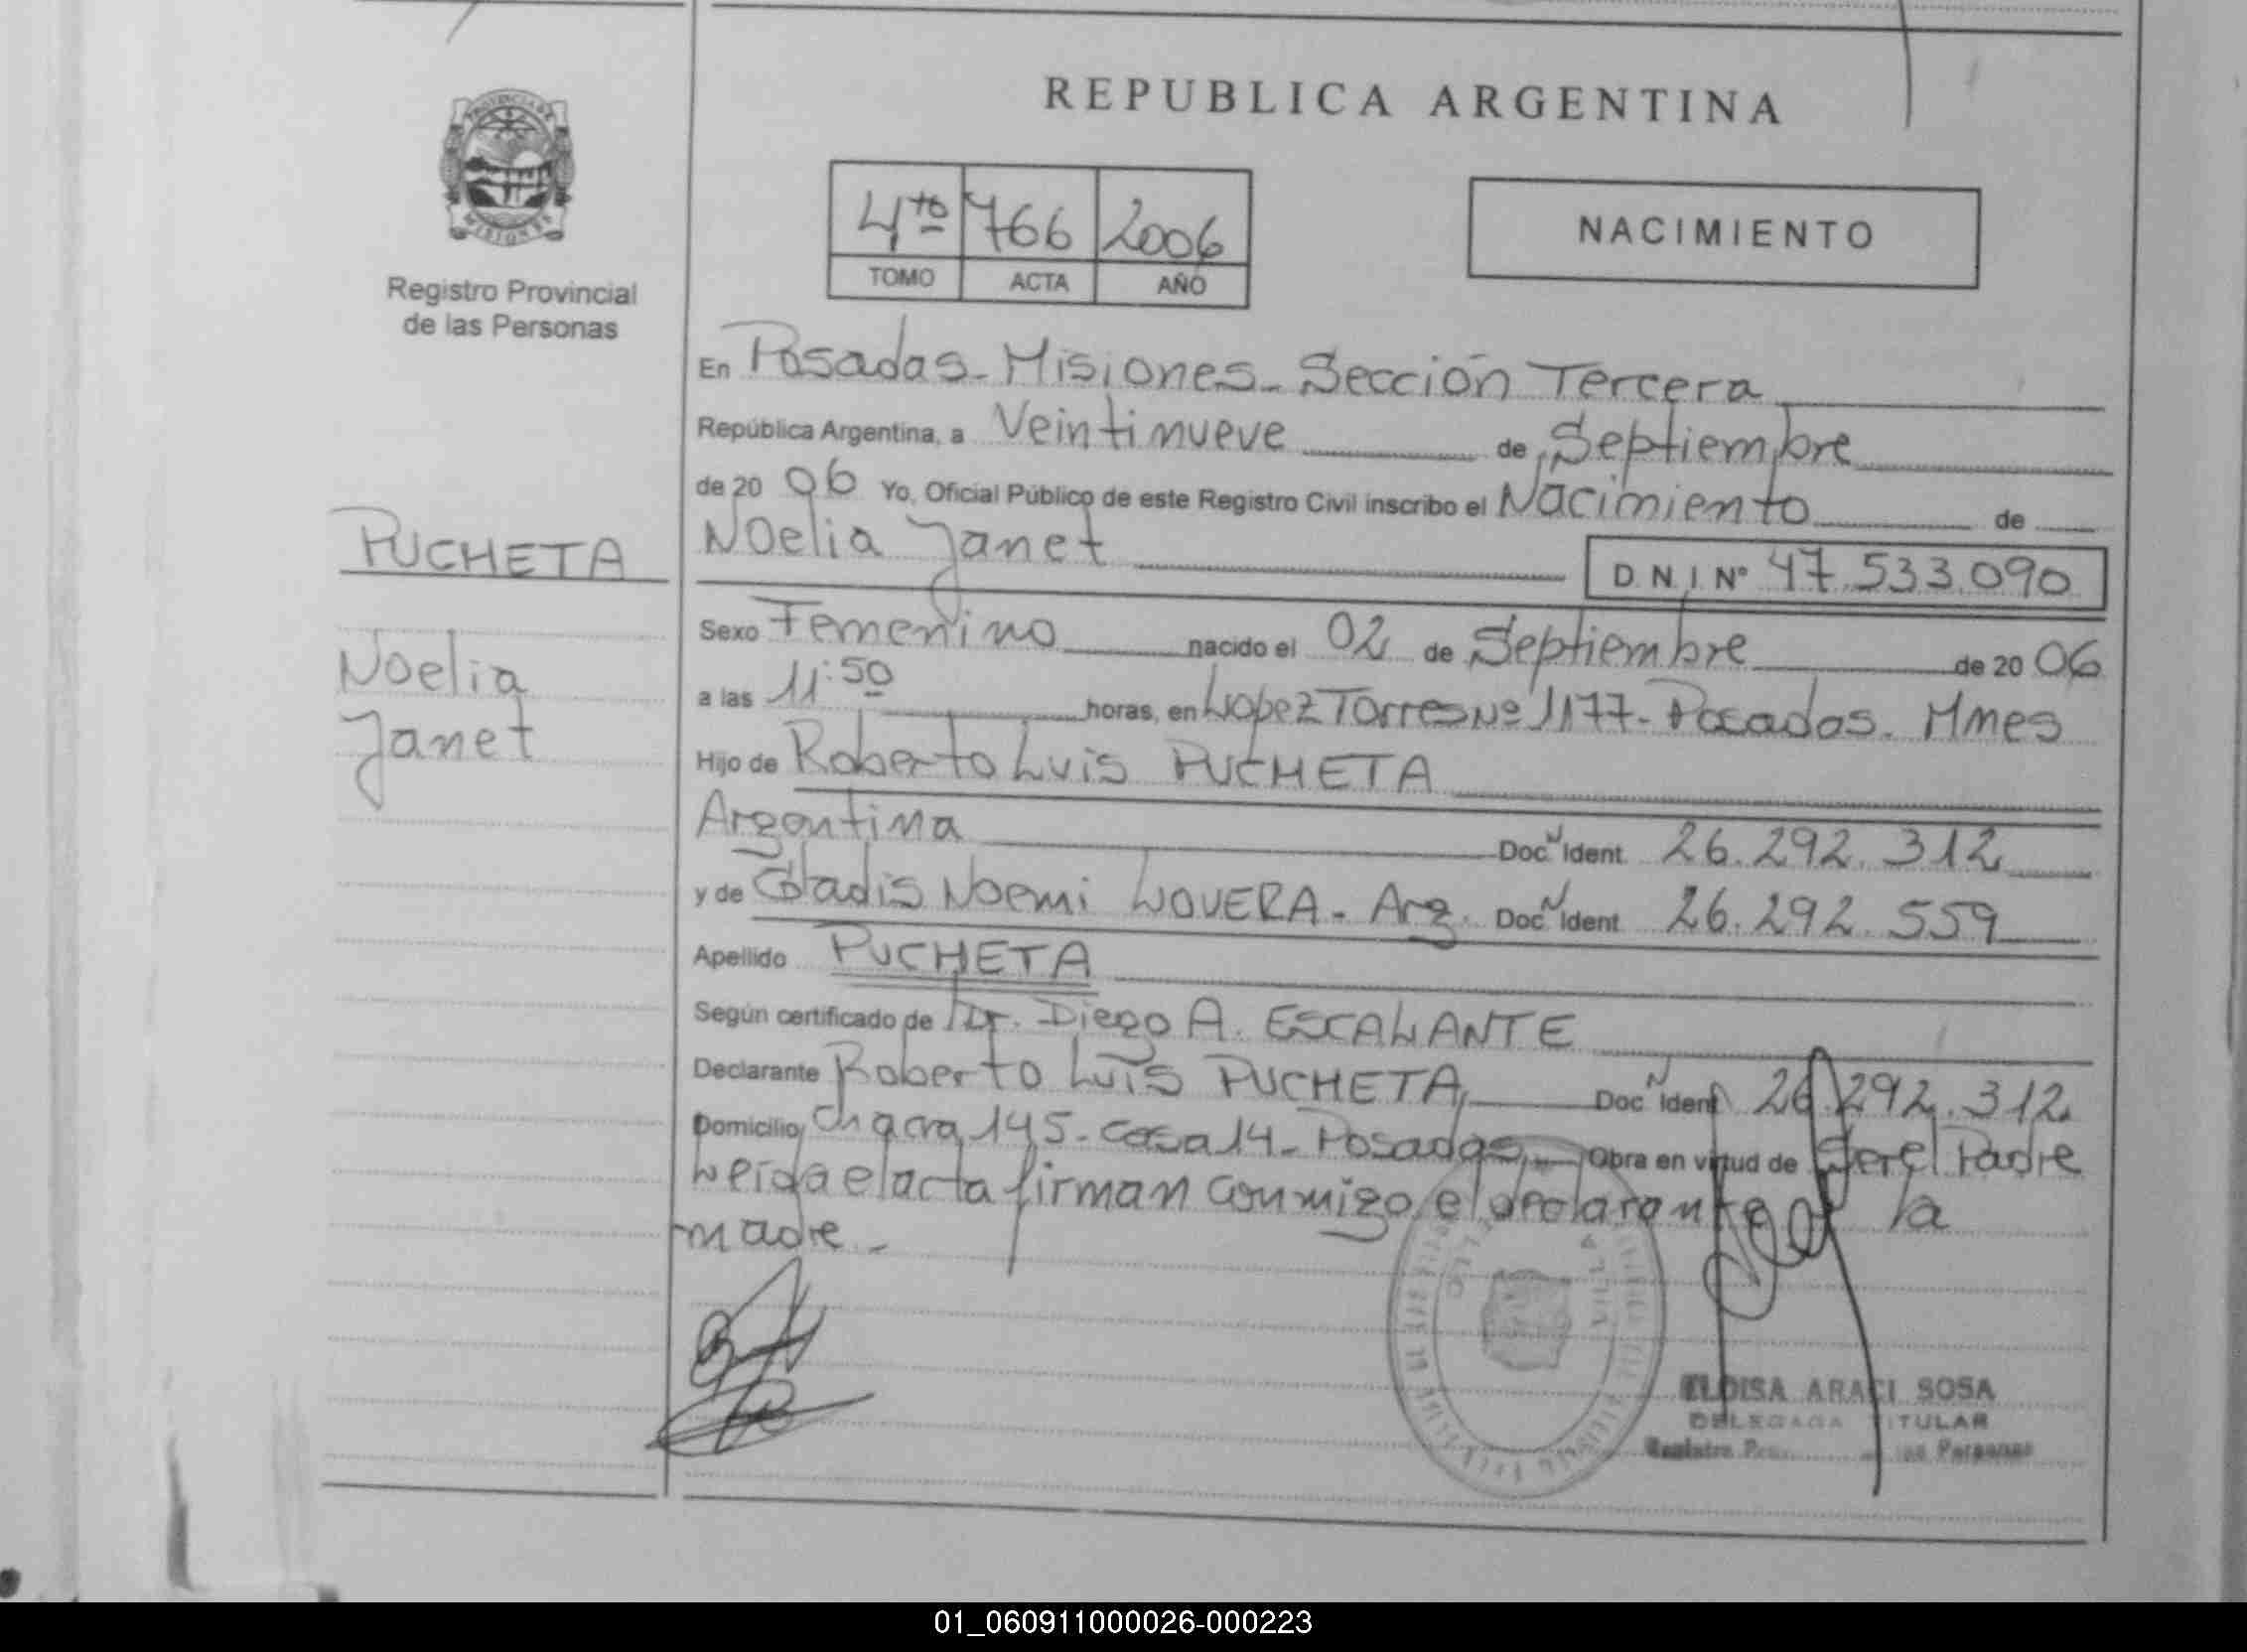 REPUBLICA ARGENTINA
PROVINCIA DE
MISIONES
Registro Provincial
de las Personas
4to 766 2006
TOMO ACTA AÑO
NACIMIENTO
En Posadas - Misiones - Sección Tercera
República Argentina, a Veintinueve de Septiembre
de 20 06 Yo, Oficial Público de este Registro Civil inscribo el Nacimiento de
Noelia Janet
D.N.I. Nº 47.533.090
PUCHETA
Noelia
Janet
Sexo Femenino nacido el 02 de Septiembre de 20 06
a las 11:50 horas, en Lopez Torres Nº 1177 - Posadas. Mnes
Hijo de Roberto Luis PUCHETA
Argentina Doc. Ident. 26.292.312
y de Gladis Noemi LOVERA - Arg. Doc. Ident. 26.292.559
Apellido PUCHETA
Según certificado de Dr. Diego A. ESCALANTE
Declarante Roberto Luis PUCHETA Doc. Ident. 26.292.312
Domicilio Chacra 145 - casa 14 - Posadas Obra en virtud de Ser el Padre
Leida el acta firman conmigo el declarante la
madre -
ELOISA ARACI SOSA
DELEGADA TITULAR
Registro Personas
01_060911000026-000223